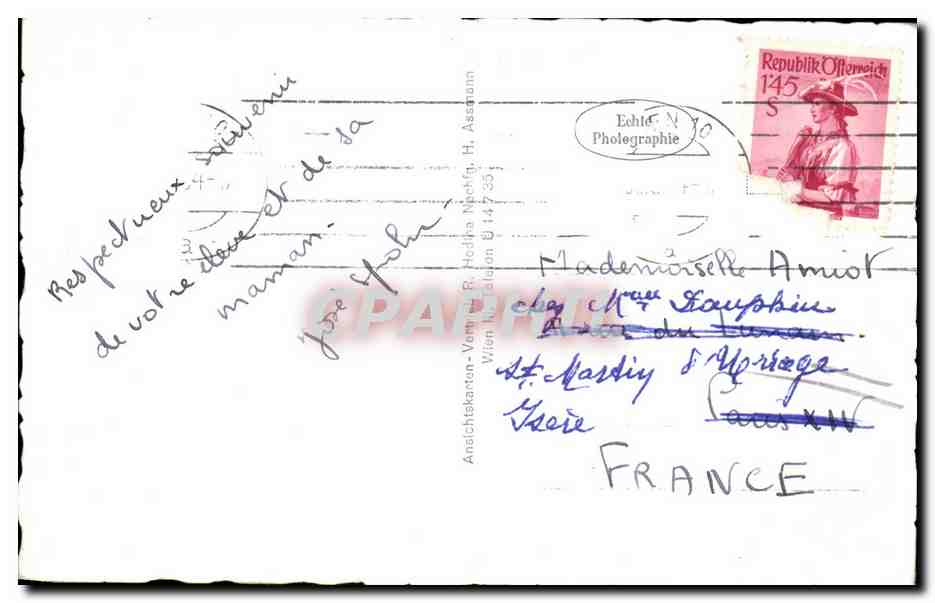 Respectueux souvenir
de votre élève et de sa
maman.
José Spohr
Ansichtskarten-Vertrieb R. Hodina Nachfg. H. Assmann
Wien Telefon U 14 7 35
Echte
Photographie
Republik Österreich
1'45
S
Mademoiselle Amiot
chez Mme Dauphin
St. Martin d'Uriage
Isère
Paris XIV
FRANCE
CPAPHIL